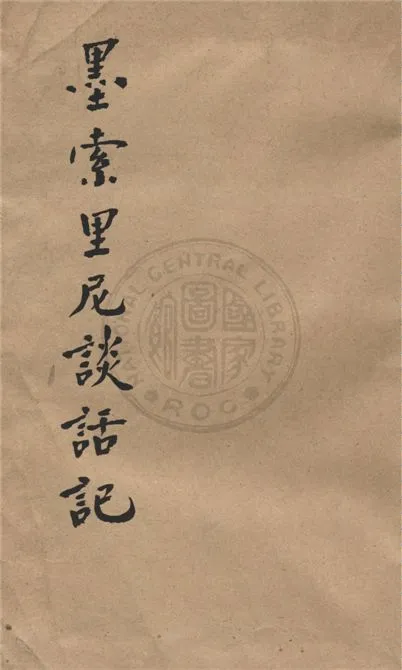 墨索里尼談話記
NATIONAL CENTRAL LIBRARY
國家圖書館
ROC